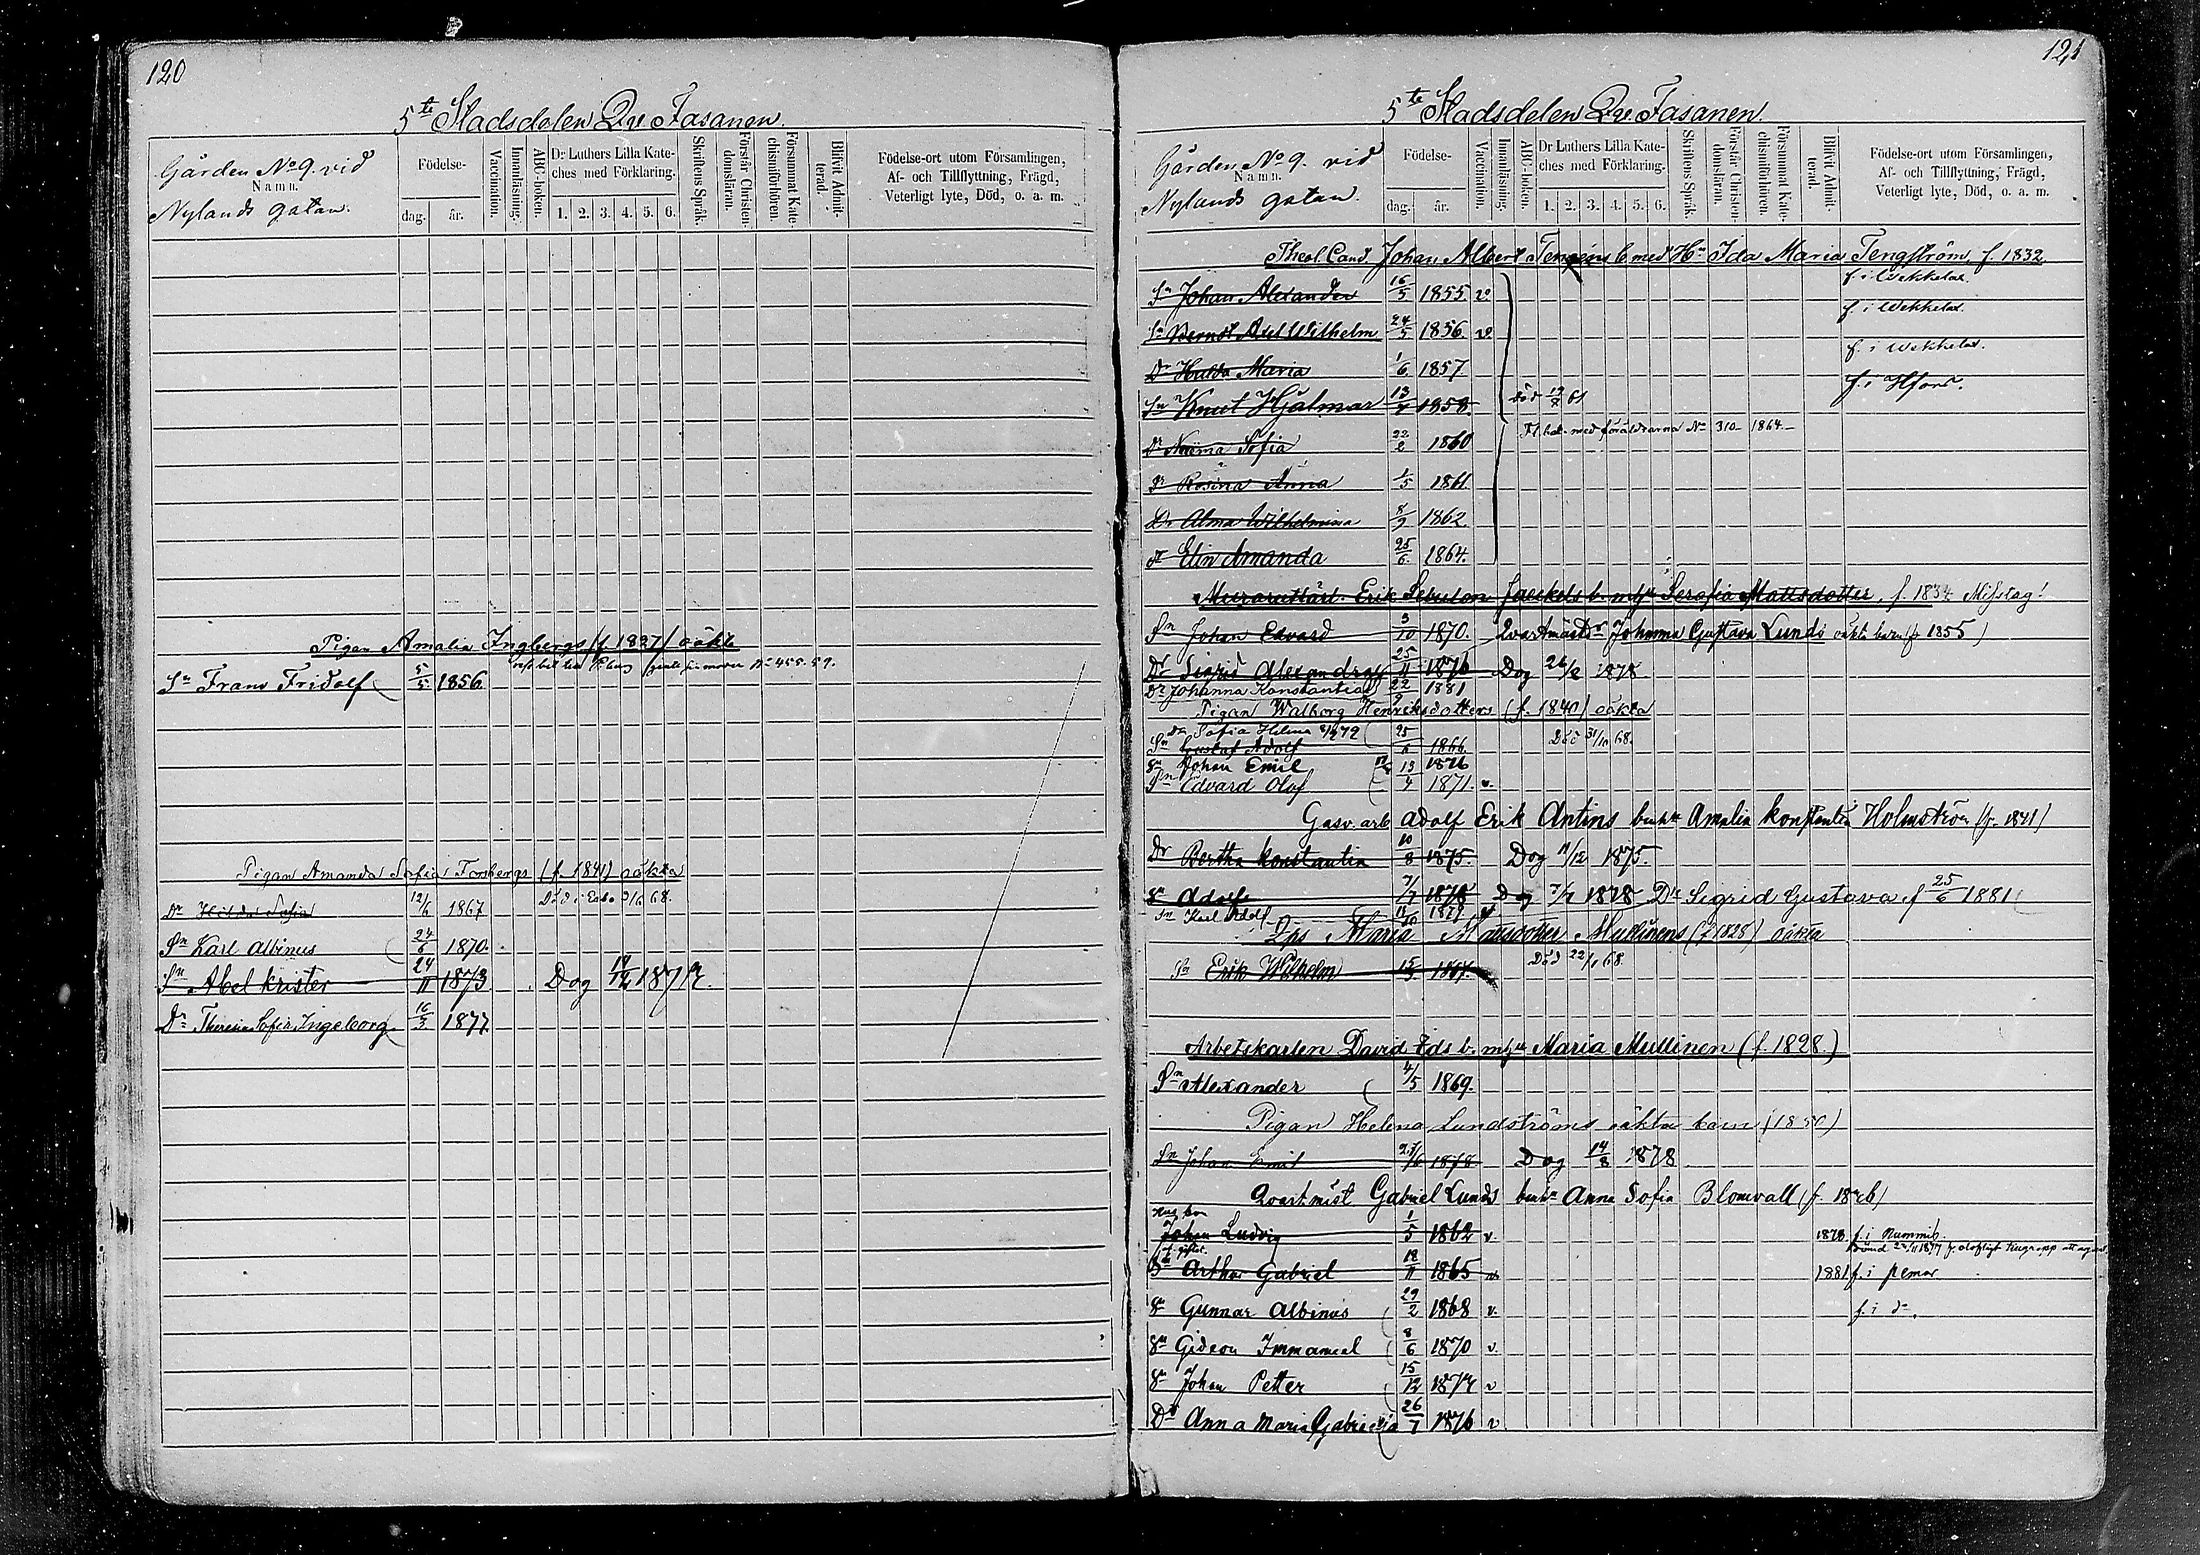 120
5te Stadsdelen Qv. Fasanen.
Gården No 9. vid
Namn.
Nylands gatan.
Födelse-
dag. år.
Vaccination.
Innanläsning.
ABC-boken.
Dr Luthers Lilla Kate-
ches med Förklaring.
1. 2. 3. 4. 5. 6.
Skriftens Språk.
Förstår Christen-
domsläran.
Försummat Kate-
chismiförhören.
Blifvit Admit-
terad.
Födelse-ort utom Församlingen,
Af- och Tillflyttning, Frägd,
Veterligt lyte, Död, o. a. m.
Pigan Amalia Ingbergs (f. 1827) oäkta
No 455. 59.
Sn Frans Fridolf 5/5 1856
Pigan Amanda Sofia Forsbergs (f. 1841) oäkta
Dr Hilda Sofia 12/6 1867 Död i Esbo 68.
Sn Karl Albinus 24/6 1870.
Sn Abel Krister 24/11 1873 Dog
Dr Theresia Sofia Ingeborg 16/3 1877
121
5te Stadsdelen Qv. Fasanen.
Gården No 9. vid
Namn.
Nylands gatan.
Födelse-
dag. år.
Vaccination.
Innanläsning.
ABC-boken.
Dr Luthers Lilla Kate-
ches med Förklaring.
1. 2. 3. 4. 5. 6.
Skriftens Språk.
Förstår Christen-
domsläran.
Försummat Kate-
chismiförhören.
Blifvit Admit-
terad.
Födelse-ort utom Församlingen,
Af- och Tillflyttning, Frägd,
Veterligt lyte, Död, o. a. m.
Theol. Cand. Johan Albert Tengéns b. med Hu Ida Maria Tengström, f. 1832
Sn Johan Alexander 16/5 1855 v. f. i Wekkelax.
Sn Bernd Axel Wilhelm 24/5 1856. v. f. i Wekkelax.
Dr Hulda Maria 1/6 1857 f. i Wekkelax.
Sn Knut Hjalmar 1858. död 61 f. i Hfors.
Dr Naëma Sofia 22/2 1860 med föräldrarna No 310 - 1864.
Dr Rosina Anna 1/5 1861.
Dr Alma Wilhelmina 8/9 1862.
Dr Elin Amanda 25/6. 1864.
Erik b. m. hu Serafia Mattsdotter, f. 1834 Misstag!
Sn Johan Edvard 3/10 1870. Johanna Gustava Lunds oäkta barn (f. 1855)
Dr Sigrid Alexandra 25/11 1876 Dog 26/2 1878.
Dr Johanna Konstantia 22/9 1881
Pigan Walborg Henriksdotters (f. 1840) oäkta
Dr Sofia Helena
Sn Gustaf Adolf 25/6 1866. Död 31/10 68.
Sn Johan Emil 1876
Sn Edvard Olof 13/4 1871. v.
Gasv. arb. Adolf Erik Antins b. m. hu Amalia Konstantia Holmström (f. 1841)
Dr Bertha Konstantia 10/8 1875. Dog 11/12 1875.
Sn Adolf 7/7 1878 Dog 7/7 1878 Dr Sigrid Gustava f. 25/6 1881
Sn Karl Adolf 1879
Maria Matsdotter Mullinens (f. 1828) oäkta
Sn Erik Wilhelm 1867. Död 22/1 68.
Arbetskarlen David b. m. hu Maria Mullinen (f. 1828.)
Sn Alexander 4/5 1869.
Pigan Helena Lundströms oäkta barn (1850)
Sn Johan Emil 1878 Dog 14/8 1878
Qvartmäst Gabriel Lunds b. m. hu Anna Sofia Blomvall (f. 1826)
Johan Ludvig 1/5 1862 v. 1878 f. i Nummis.
Sn Arthur Gabriel 18/11 1865 v. 1881 f. i Pemar
Sn Gunnar Albinus 29/2 1868 v. f. i do.
Sn Gideon Immanuel 8/6 1870 v.
Sn Johan Petter 15/12 v
Dr Anna Maria Gabriella 26/7 1876 v